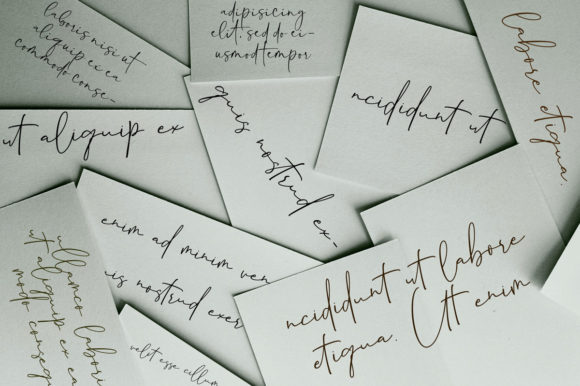 laboris nisi ut
aliquip ex ea
commodo conse-
adipisicing
elit, sed do ei-
usmod tempor
labore etiqua.
ncididunt ut
ut aliquip ex
quis nostrud ex-
enim ad minim ven
uis nostrud exer
ullamco labori
ut aliquip ex ea
modo consequ
ncididunt ut labore
etiqua. Ut enim
velit esse cillum